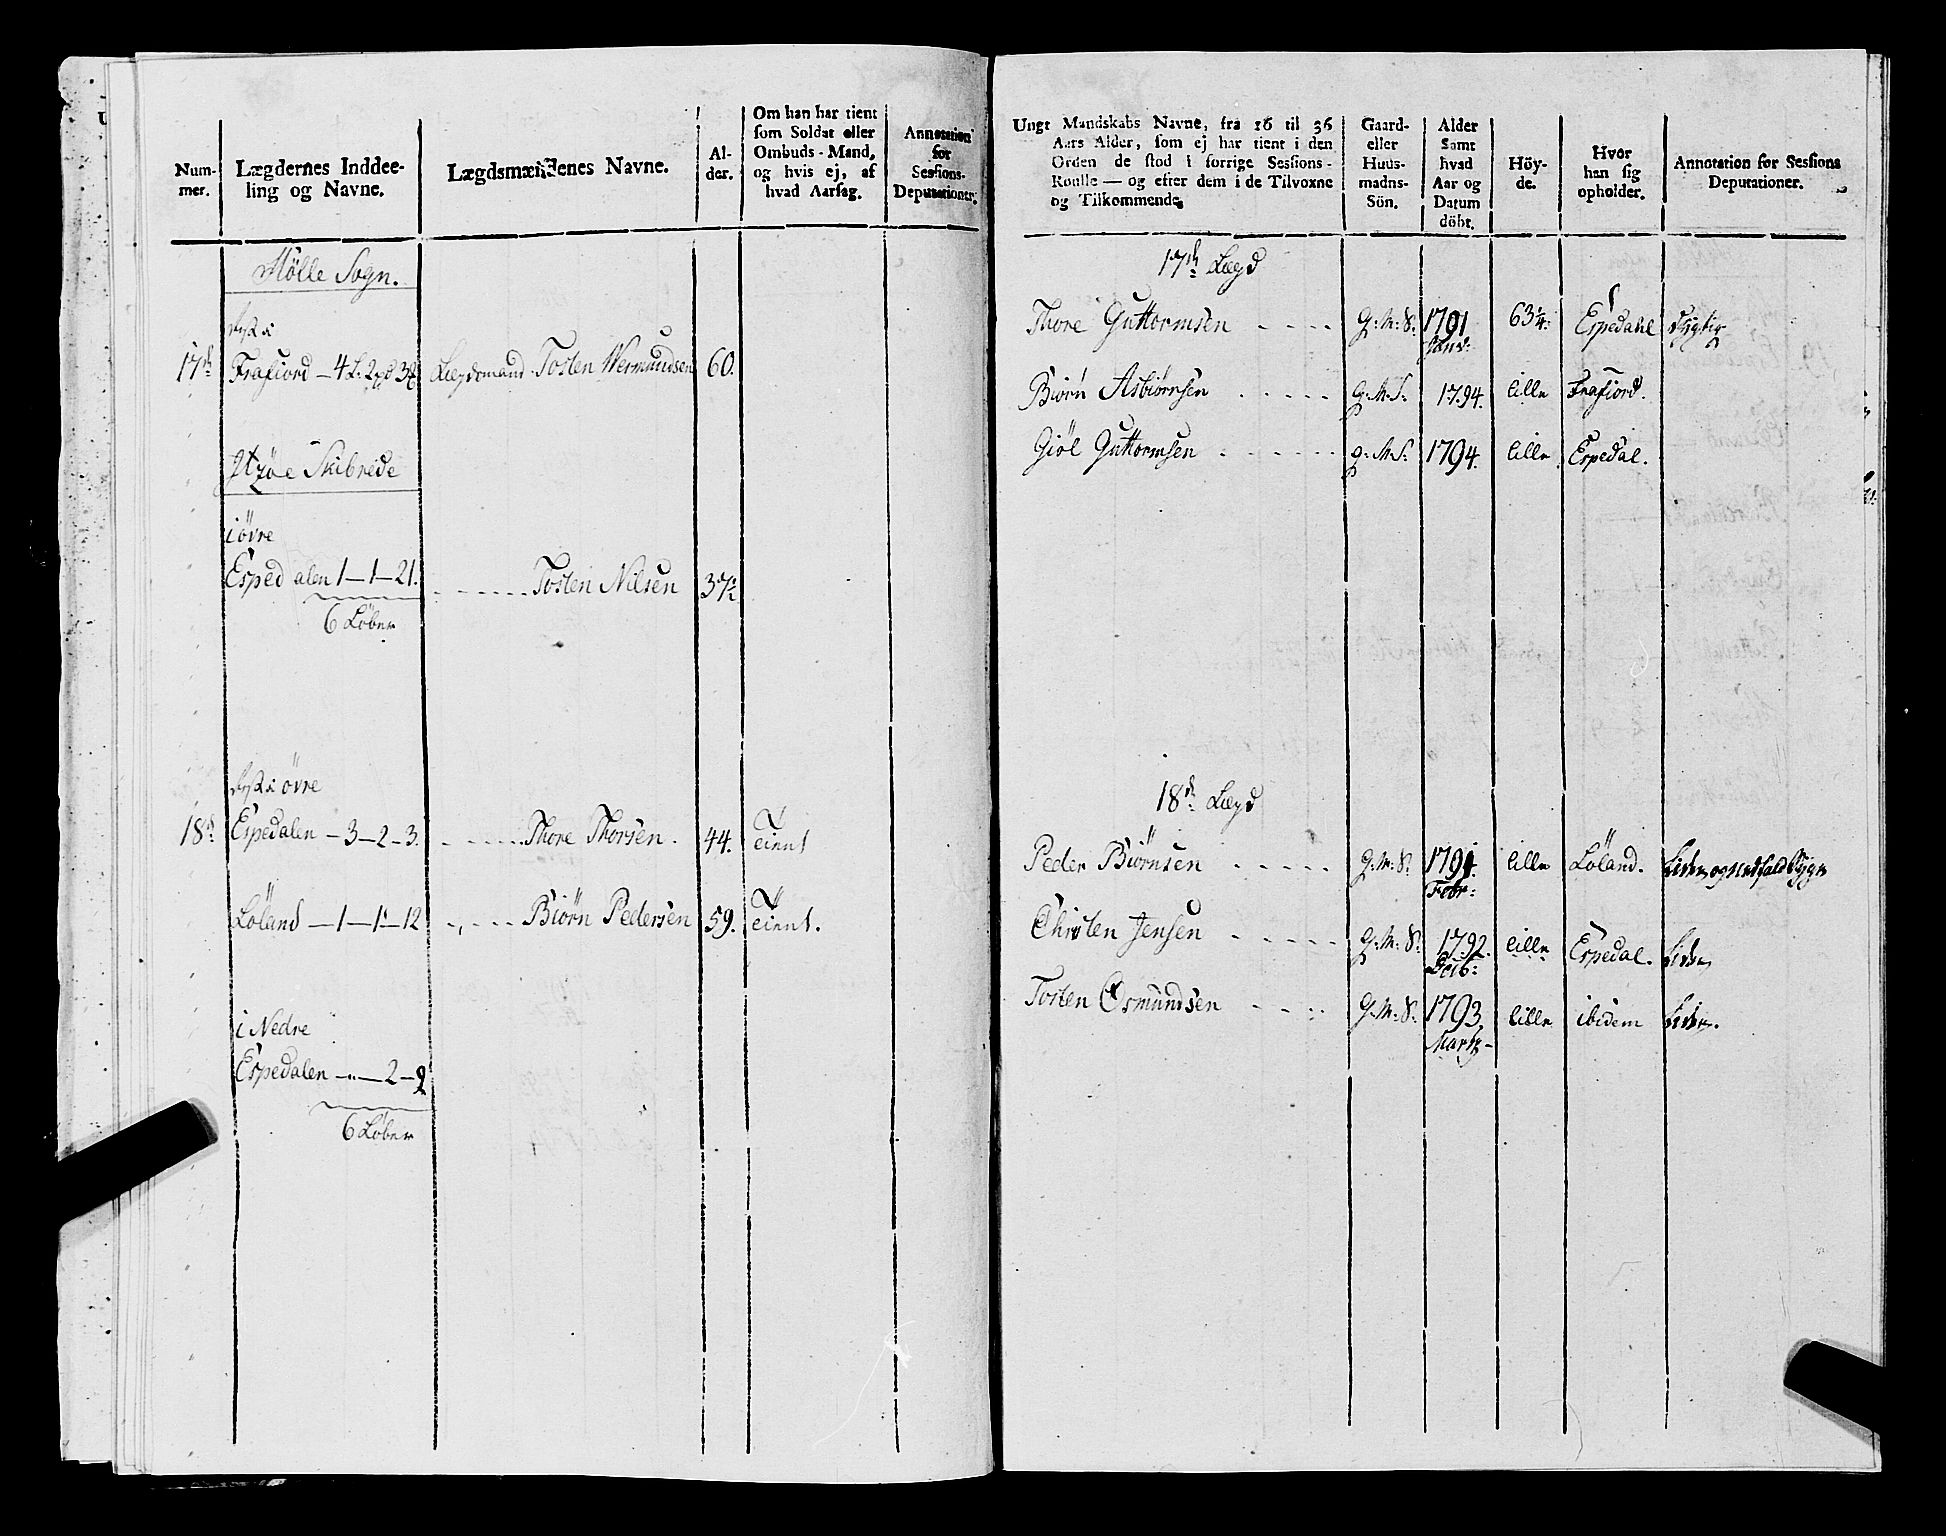 Num-
mer.
Lægdernes Inddee-
ling og Navne.
Lægdsmændenes Navne.
Al-
der.
Om han har tient
som Soldat eller
Ombuds-Mand,
og hvis ej, af
hvad Aarsag.
Annotation
for
Sessions-
Deputationer.
Mölle Sogn.
17de Frafiord — 4 L: 2
Lægdsmand Tosten Wermundsen 60.
Skibrede
i övre
Espedalen 1—1—21.
Tosten Nilsen 37½
6 Løber
övre
18de Espedalen — 3—2—3. Thore Thorsen. 44. tient
Löland — 1—1—12 Biørn Pedersen 59. tient.
i Nedre
Espedalen — " — 2—9
6 Løber
Ungt Mandskabs Navne, fra 16 til 36
Aars Alder, som ej har tient i den
Orden de stod i forrige Sessions-
Roulle — og efter dem i de Tilvoxne
og Tilkommende.
Gaard-
eller
Huus-
mands-
Sön.
Alder
Samt
hvad
Aar og
Datum
döbt.
Höy-
de.
Hvor
han sig
opholder.
Annotation for Sessions
Deputationer.
17de Lægd
Thore Guttormsen G:M:S: 1791 63¼: Espedahl dygtig
Biørn Asbiørnsen G:M:S: 1794. lille Frafiord.
Giöl Guttormsen G:M:S: 1794. lille Espedal.
18de Lægd
Peder Biörnsen G:M:S: 1791. lille Löland.
Febr:
Christen Jensen G:M:S: 1792. lille Espedal. liden
Tosten Osmundsen G:M:S: 1793. lille ibidem liden.
Martz